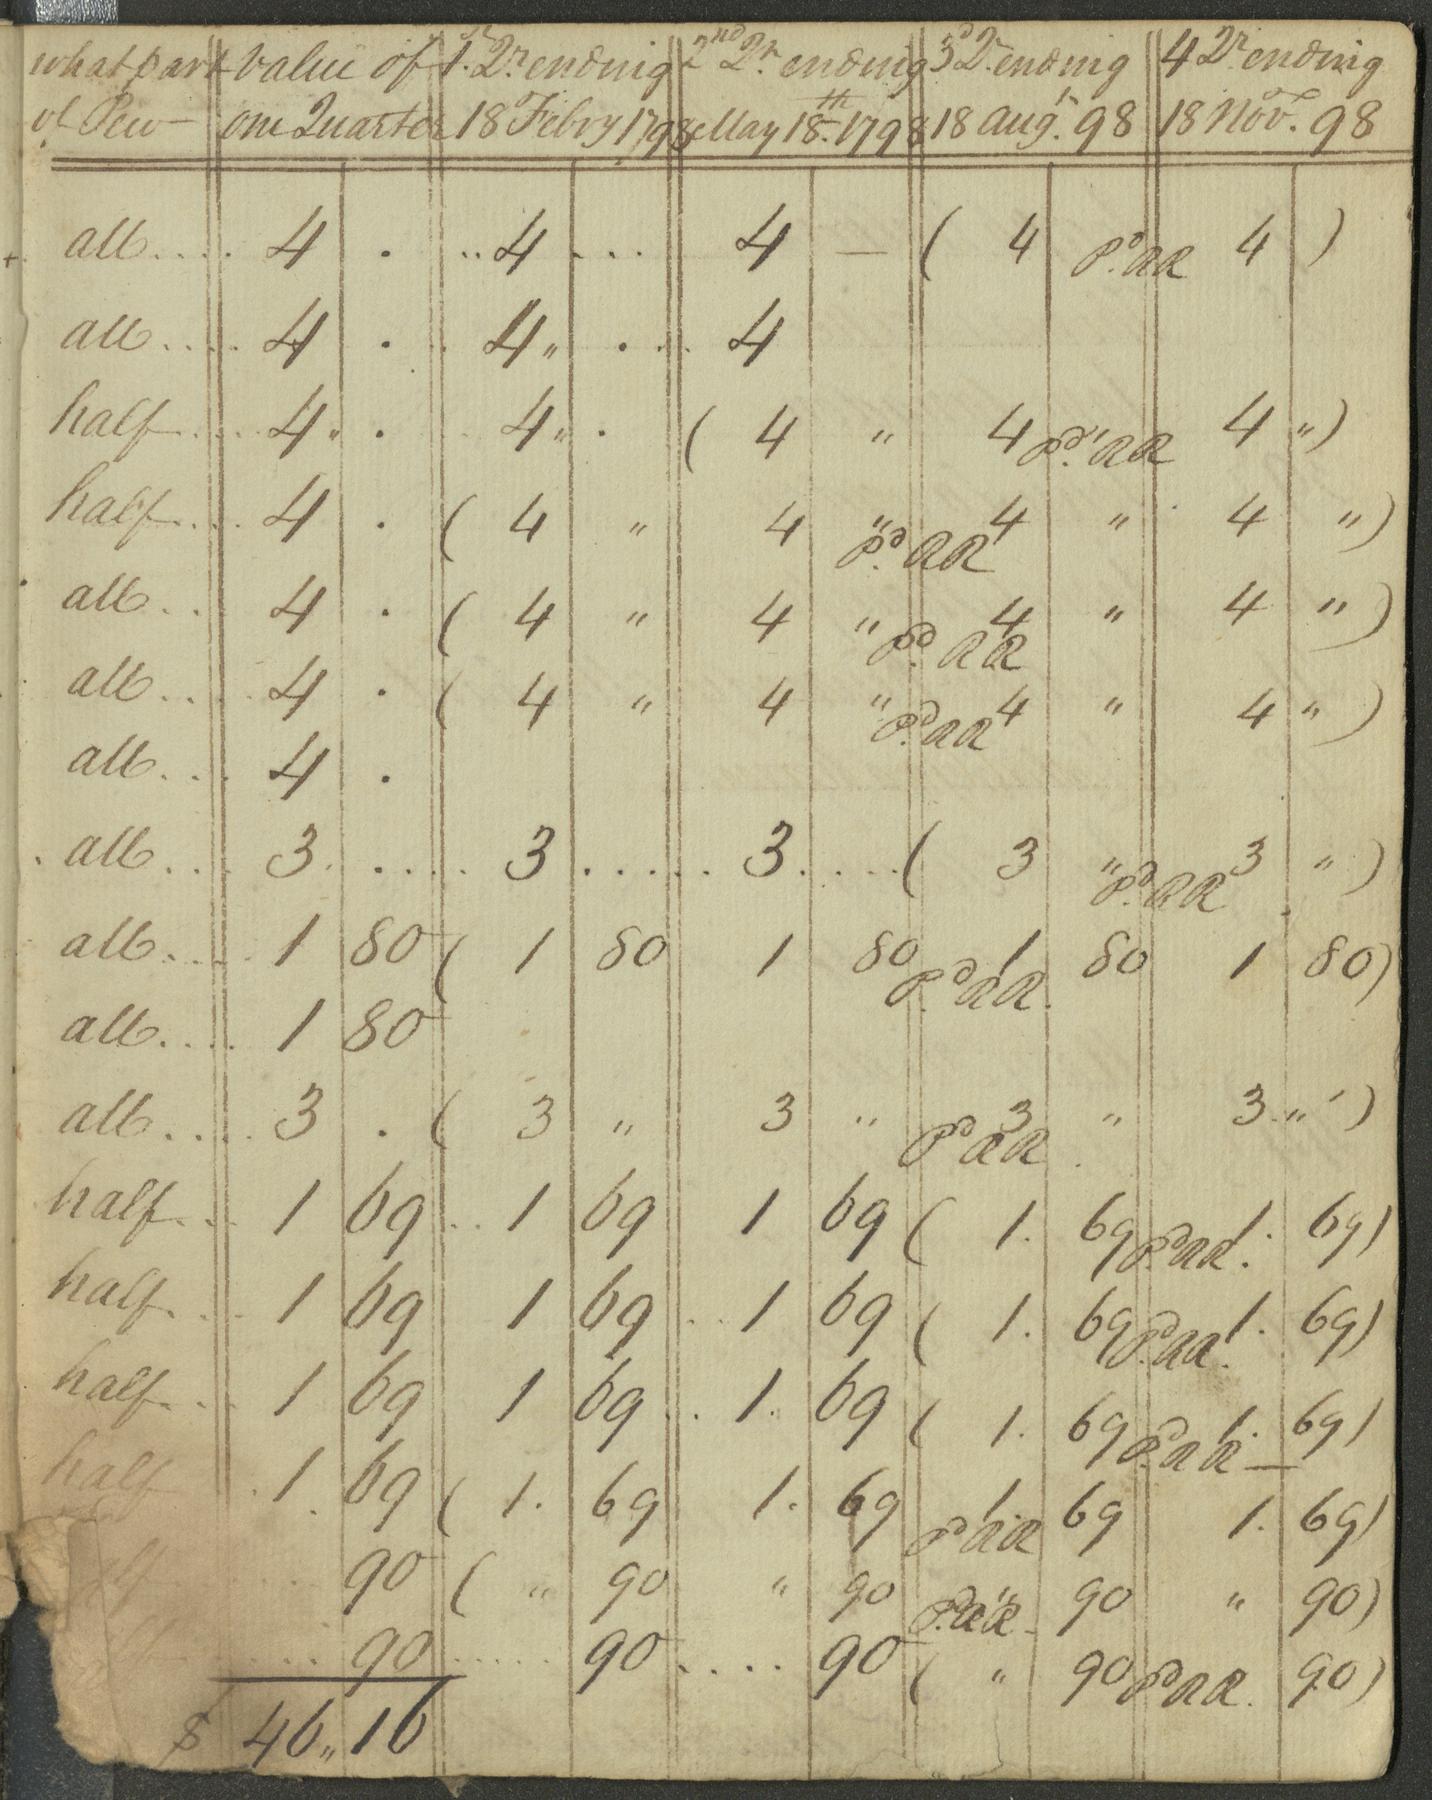 what part value of 1.st Qr. ending 2nd Qr. ending 3d Qr. ending 4 Qr ending
of Pew one Quarter 18 Febry 1798 May 18th. 1798 18 augt. 98 18 Nov. 98
all.... 4 . .. 4 ... 4 — ( 4 Pd. RR 4 )
all.... 4 . . 4 „ . .. 4
half.... 4 „ . . 4 „ . ( 4 „ 4 Pd. RR 4 „ )
half.... 4 . ( 4 „ 4 „ Pd. RR 4 „ 4 „ )
all... 4 . ( 4 „ 4 „ Pd. RR 4 „ 4 „ )
all.... 4 . ( 4 „ 4 „ Pd. RR 4 „ 4 „ )
all.... 4 .
all.... 3 .... 3 ..... 3 .... ( 3 „ Pd. RR 3 „ )
all.... 1 80 ( 1 80 1 80 Pd. RR. 1 80 1 80)
all.... 1 80
all.... 3 . ( 3 „ 3 „ Pd RR 3 „ 3 „ )
half... 1 69 .. 1 69 1 69 ( 1. 69 Pd. RR. 1. 69)
half... 1 69 1 69 .. 1 69 ( 1. 69 Pd. RR. 1. 69)
half... 1 69 1 69 .. 1. 69 ( 1. 69 Pd. RR — 1. 69)
half . 1. 69 ( 1. 69 1. 69 Pd RR 1. 69 1. 69)
90 ( „ 90 „ 90 Pd. RR „ 90 „ 90)
.... 90 ..... 90 .... 90 ( „ 90 Pd RR. 90)
$ 46 „ 16